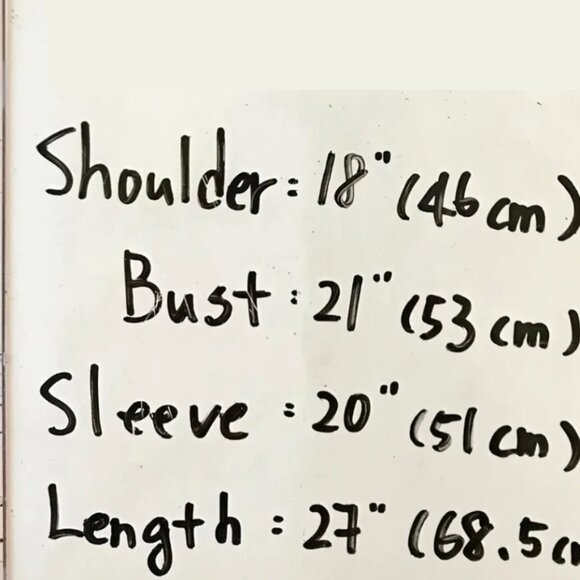 Shoulder: 18" (46 cm)
Bust: 21" (53 cm)
Sleeve: 20" (51 cm)
Length: 27" (68.5 c